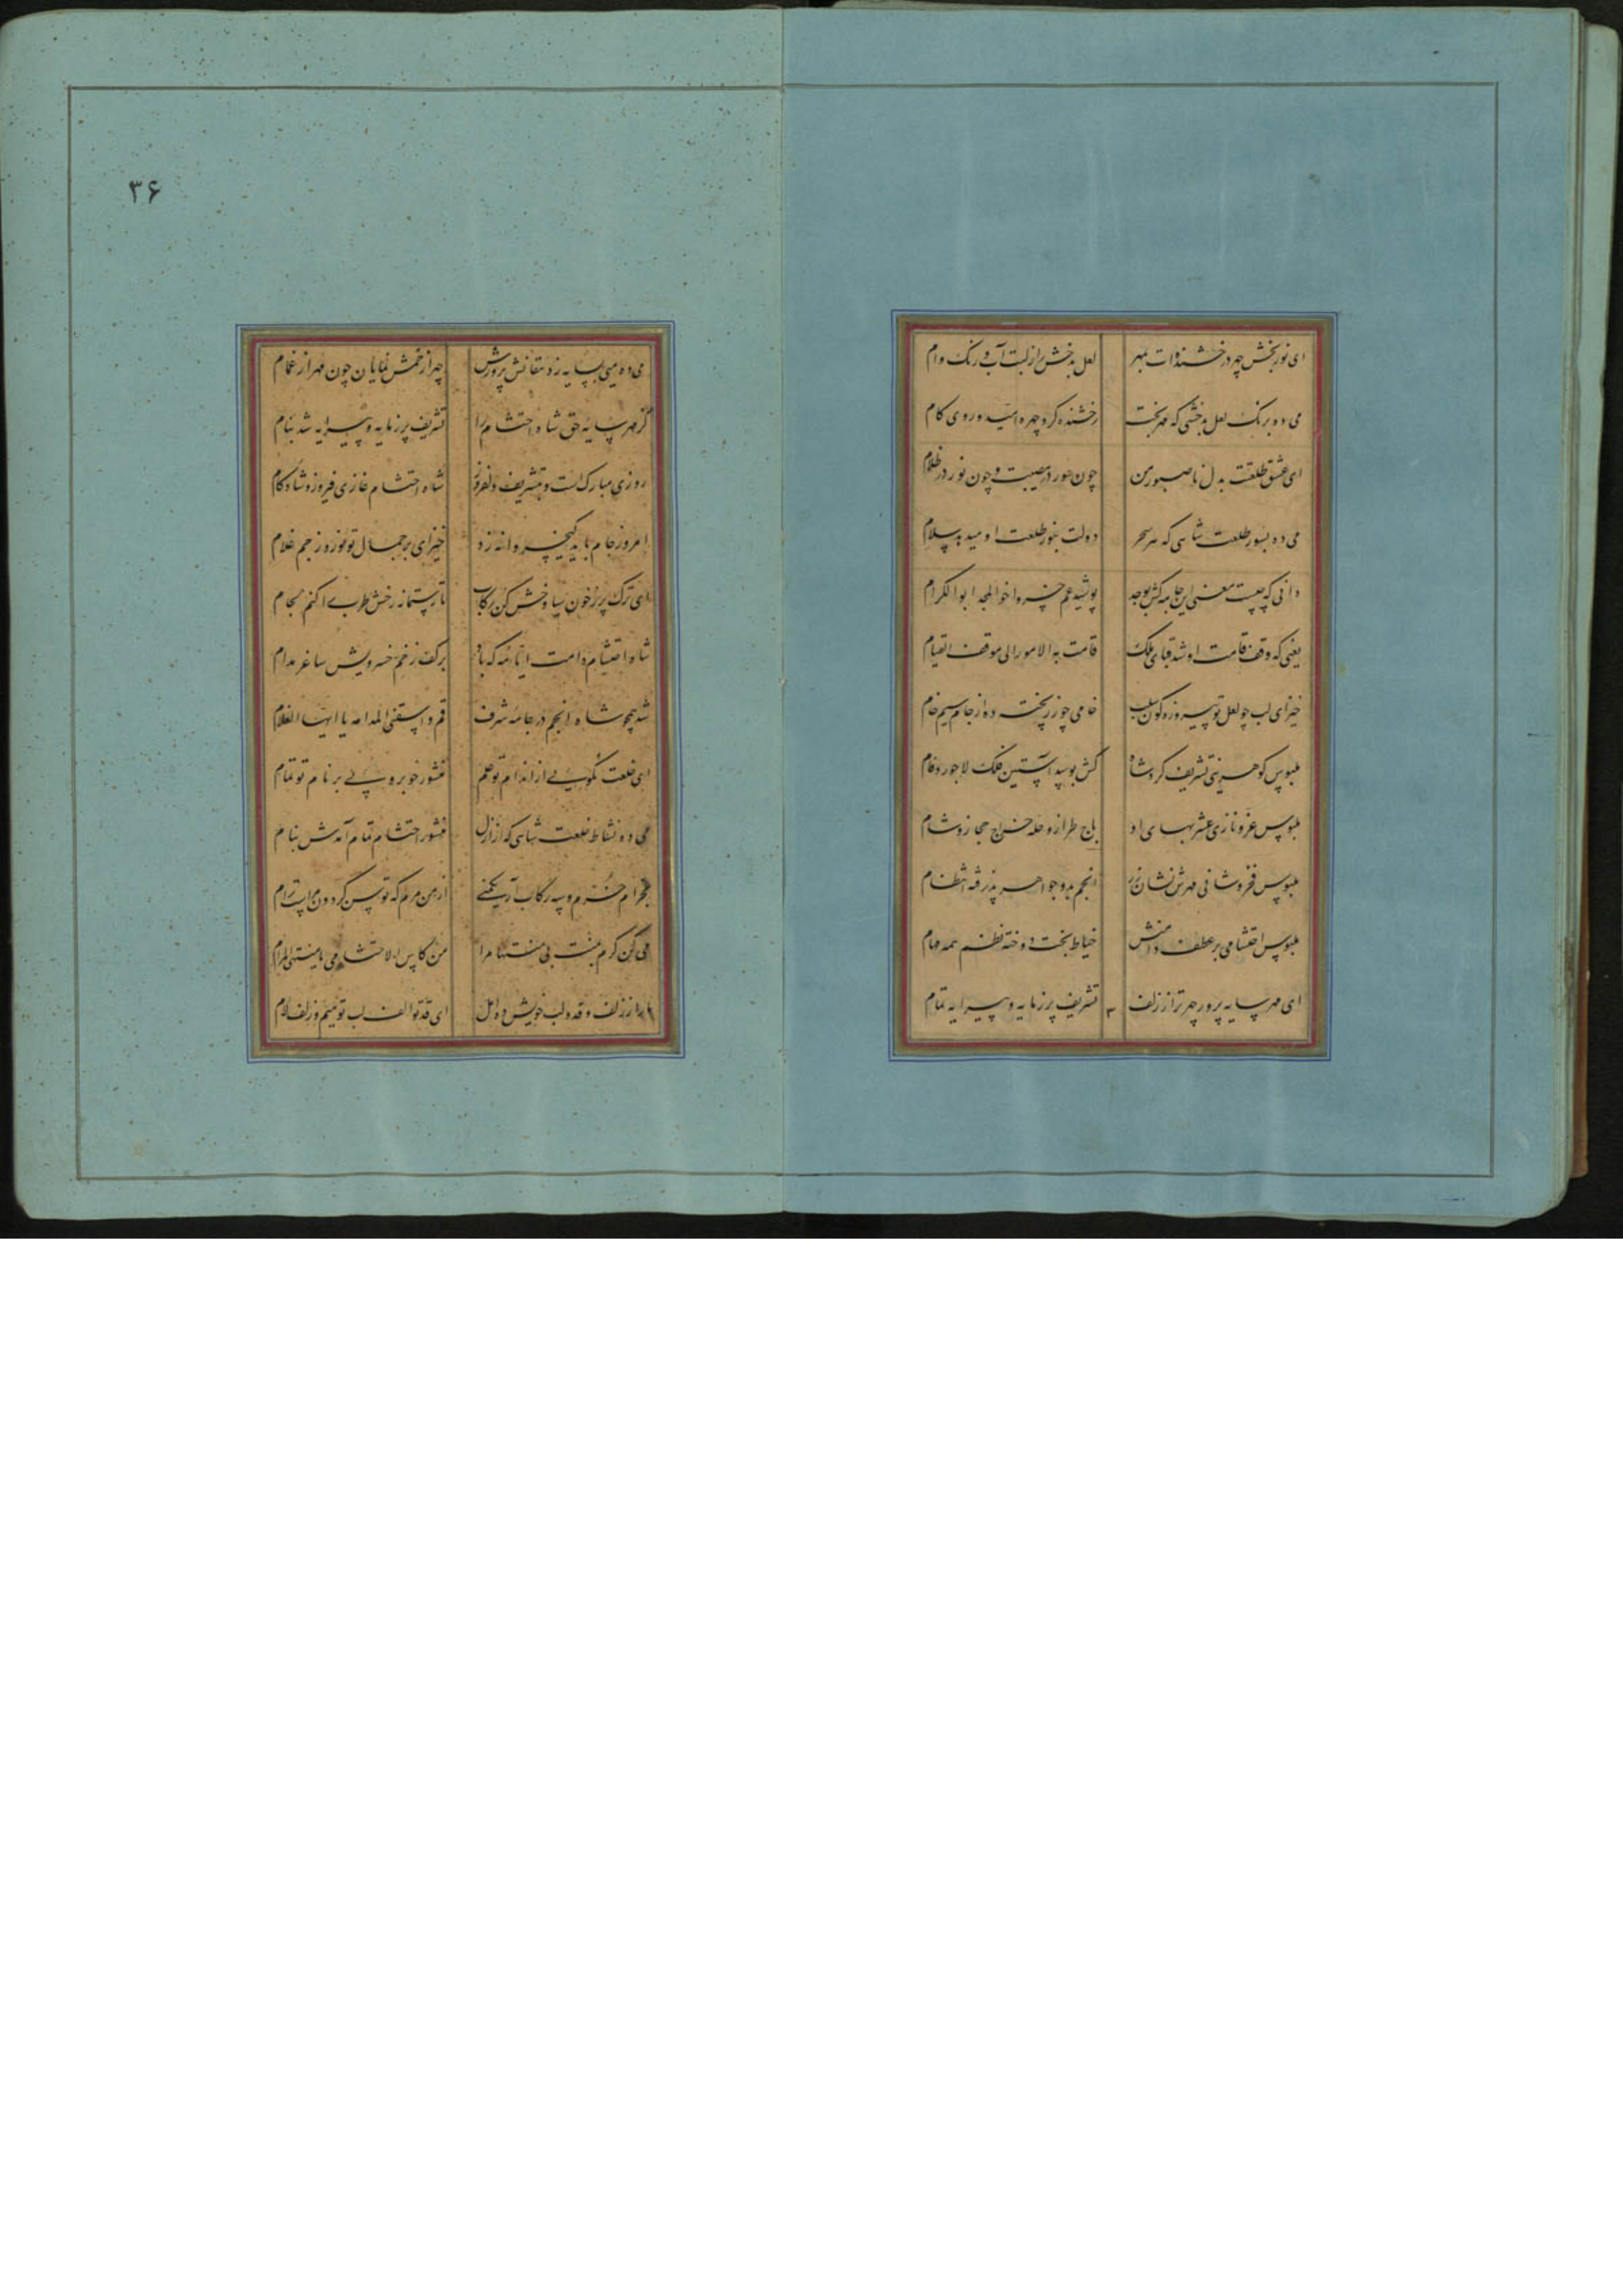 ای نور بخش چهر درخشنده ات بمهر لعل بدخش را ز لبت آب و رنک وام
می ده برنک لعل بدخشی که مهر بخت رخشنده کرد چهره امید و روی کام
ای عشق طلعتت بدل ناصبور من چون حور در مصیبت و چون نور در ظلام
می ده بسور طلعت شاهی که هر سحر دولت بنور طلعت او میدهد سلام
دانی که چیست معنی این جامه کش بوجد پوشید عم خسرو اخوالمجد ابوالکرام
یعنی که وقف قامت او شد قبای ملک قامت به الامور الی موقف القیام
خیز ای لب چو لعل تو پیروزه کون سلب خامی چو زر پخته ده از جام سیم خام
ملبوس کوهرینی تشریف کرد شاه کش بوسد آستین فلک لاجورد فام
ملبوس عز و نازی عشر بهای او باج طراز و حله خراج حجاز و شام
ملبوس فخر و شانی مهرش نشان زر انجم بدو جواهر پذرفته انتظام
ملبوس احتشامی بر عطف دامنش خیاط بخت دوخته نظم همه مهام
ای مهر سایه پرور چهر تو از زلف تشریف پرز مایه و پیرایه تمام
۳۶
می ده میی بسایه رز دهقانش پرورش چهر از خمش نمایان چون مهر از غمام
کز مهر سایه حق شاه احتشام را تشریف پرز مایه و پیرایه شد بنام
روزی مبارک است و بتشریف دلفروز شاه احتشام غازی فیروز و شادکام
امروز جام باید کیخسروانه زد خیز ای بر جمال تو نوروز جم غلام
ای ترک پر ز خون سیاوخش کن رکاب تا رستمانه رخش طرب را کنم لجام
شاه احتشام دامت ایامه که باد بر کف ز خم خسرویش ساغر مدام
شد همچو شاه انجم در جامه شرف قم و اسقنی المدامه یا ایها الغلام
ای خلعت نکویی از اندام تو علم منشور خوبرویی بر نام تو تمام
می ده نشاط خلعت شاهی که از ازل منشور احتشام تمام آمدش بنام
بخرام خنک و سه رکاب آر یکمنی از من مرم که توسن کردون مراست رام
می کن کرم بمنت بی منتها مرا من کاس الاحتشامی یا منتهی المرام
ما را ز زلف و قد و لب خویش ده امل ای قد تو الف لب تو میم و زلف لام